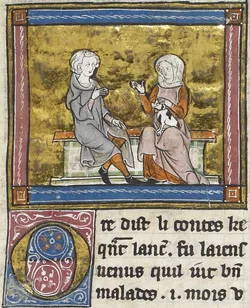 Ore dist li contes ke
qnt lanc. fu laiens
uenus quil iut bn
malades .i. mois